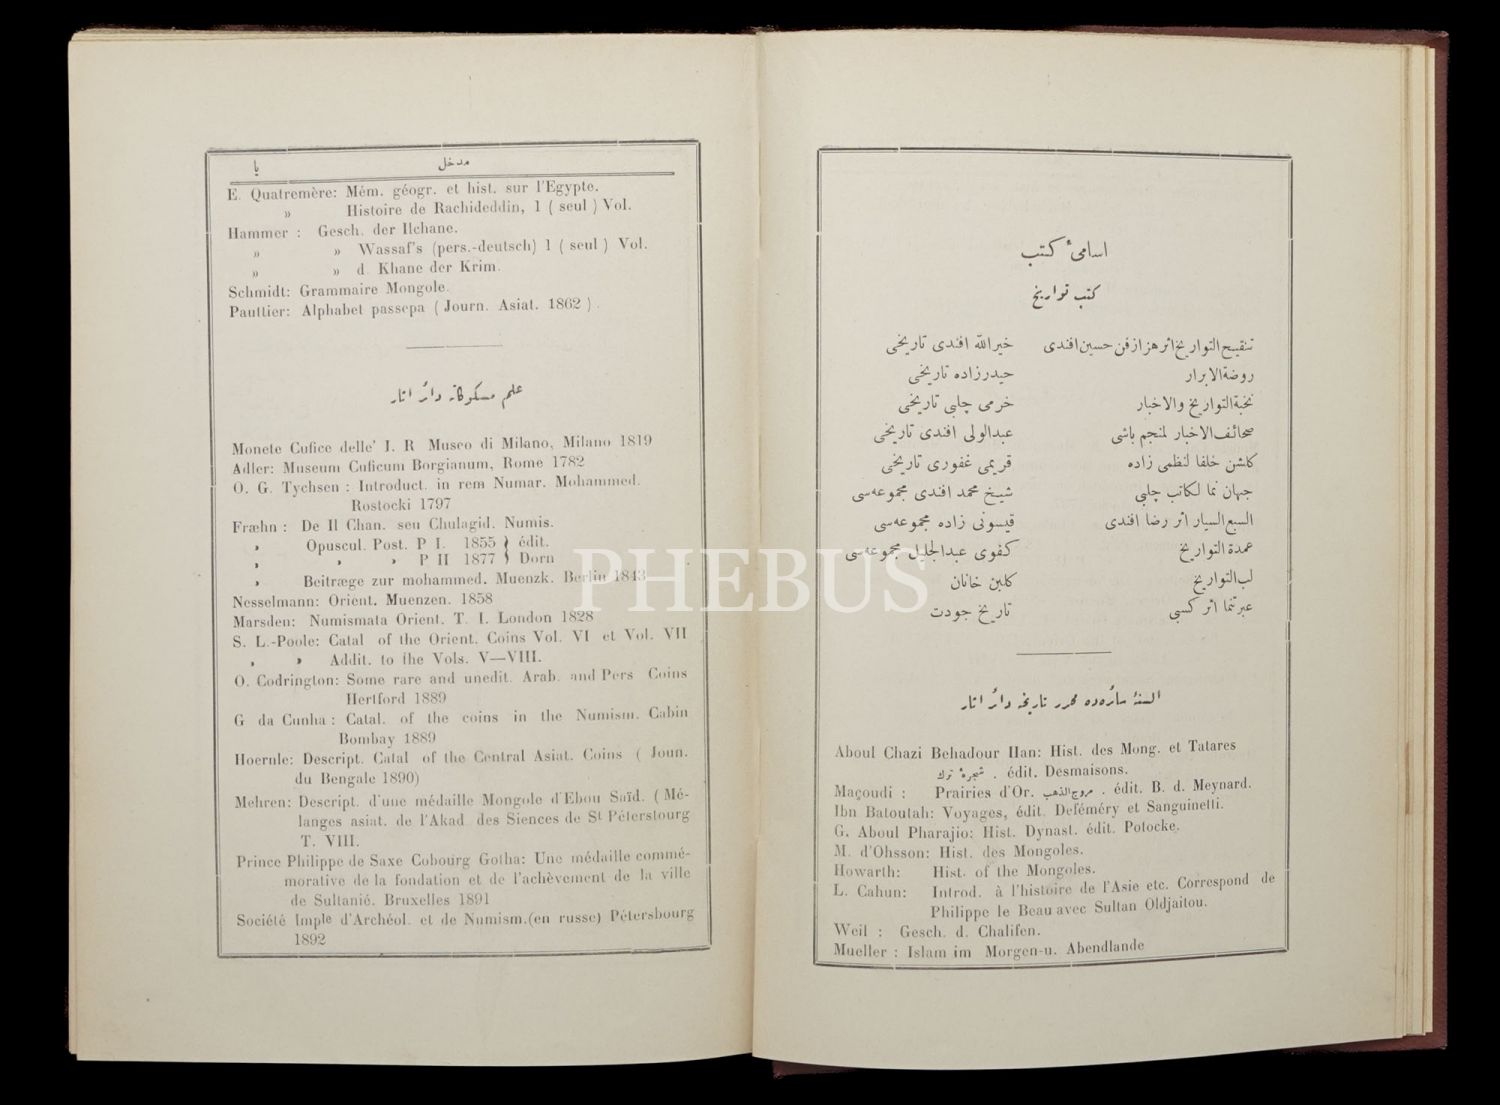 اسامیٔ كتب
كتب تواریخ
تنقیح‌التواریخ اثر هزارفن حسین افندی
روضةالابرار
نخبةالتواریخ والاخبار
صحائف‌الاخبار لمنجم باشی
كلشن خلفا لنظمی زاده
جهان نما لكاتب چلبی
السبع‌السیار اثر رضا افندی
عمدة التواریخ
لب‌التواریخ
عبرتنما اثر كسبی
خیرالله افندی تاریخی
حیدرزاده تاریخی
خرمی چلبی تاریخی
عبدالولی افندی تاریخی
قریمی غفوری تاریخی
شیخ محمد افندی مجموعه‌سی
قیسونی زاده مجموعه‌سی
كفوی عبدالجلیل مجموعه‌سی
كلبن خانان
تاریخ جودت
السنهٔ سائره‌ده محرر تاریخه دائر اثار
Aboul Chazi Behadour Han: Hist. des Mong. et Tatares
شجرهٔ ترك . édit. Desmaisons.
Maçoudi : Prairies d'Or. مروج‌الذهب . édit. B. d. Meynard.
Ibn Batoutah: Voyages, édit. Deféméry et Sanguinetti.
G. Aboul Pharajio: Hist. Dynast. édit. Potocke.
M. d'Ohsson: Hist. des Mongoles.
Howarth: Hist. of the Mongoles.
L. Cahun: Introd. à l'histoire de l'Asie etc. Correspond de
Philippe le Beau avec Sultan Oldjaitou.
Weil : Gesch. d. Chalifen.
Mueller : Islam im Morgen-u. Abendlande
مدخل یا
E. Quatremère: Mém. géogr. et hist. sur l'Egypte.
» Histoire de Rachideddin, 1 ( seul ) Vol.
Hammer : Gesch. der Ilchane.
» » Wassaf's (pers.-deutsch) 1 ( seul ) Vol.
» » d. Khane der Krim.
Schmidt: Grammaire Mongole.
Pauttier: Alphabet passepa ( Journ. Asiat. 1862 ) .
علم مسكوكاته دائر اثار
Monete Cufice delle' I. R Museo di Milano, Milano 1819
Adler: Museum Cuficum Borgianum, Rome 1782
O. G. Tychsen : Introduct. in rem Numar. Mohammed.
Rostocki 1797
Fræhn : De Il Chan. seu Chulagid. Numis.
, Opuscul. Post. P I. 1855 } édit.
, , , P II 1877 } Dorn
, Beitræge zur mohammed. Muenzk. Berlin 1843
Nesselmann: Orient. Muenzen. 1858
Marsden: Numismata Orient. T. I. London 1828
S. L.-Poole: Catal of the Orient. Coins Vol. VI et Vol. VII
, , Addit. to the Vols. V—VIII.
O. Codrington: Some rare and unedit. Arab. and Pers Coins
Hertford 1889
G da Cunha : Catal. of the coins in the Numism. Cabin
Bombay 1889
Hoernle: Descript. Catal of the Central Asiat. Coins ( Joun.
du Bengale 1890)
Mehren: Descript. d'une médaille Mongole d'Ebou Saïd. ( Mé-
langes asiat. de l'Akad des Siences de St Péterstourg
T. VIII.
Prince Philippe de Saxe Cobourg Gotha: Une médaille commé-
morative de la fondation et de l'achèvement de la ville
de Sultanié. Bruxelles 1891
Société Imple d'Archéol. et de Numism.(en russe) Pétersbourg
1892
PHEBUS